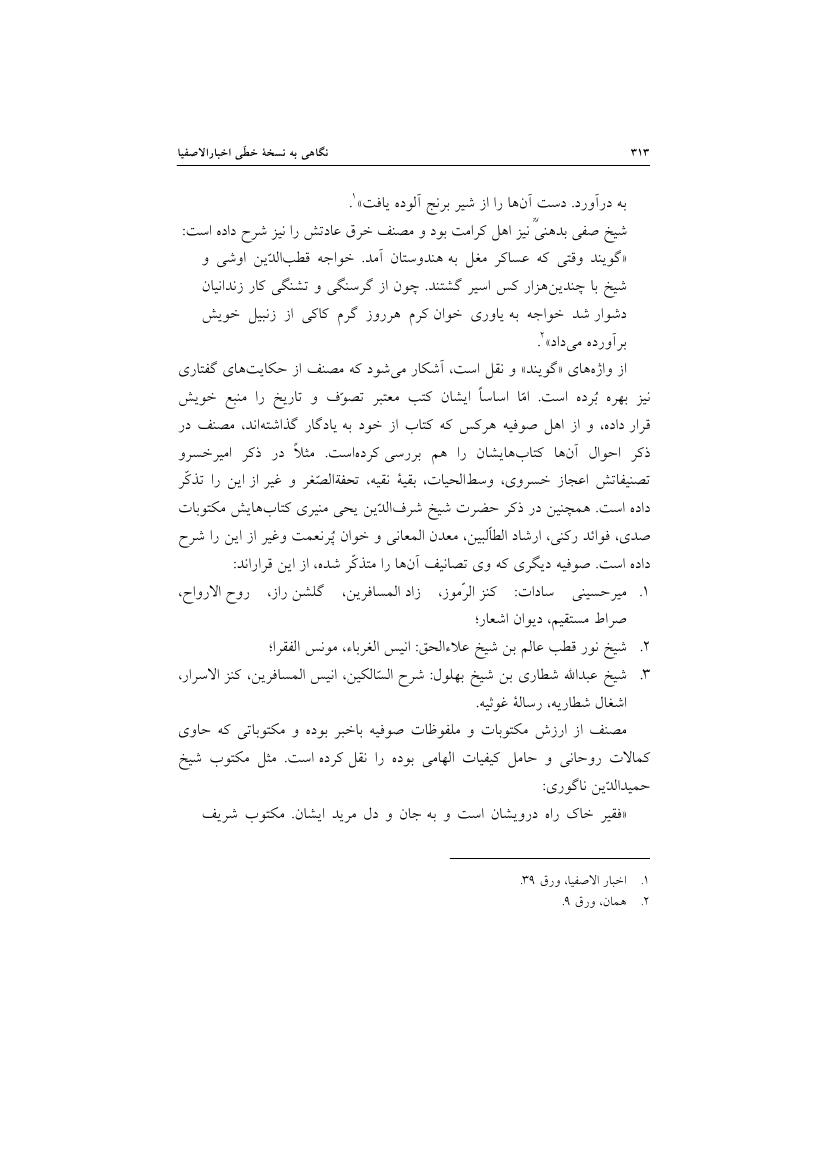 ۳۱۳ نگاهی به نسخهٔ خطّی اخبارالاصفیا
به درآورد. دست آن‌ها را از شیر برنج آلوده یافت»۱.
شیخ صفی بدهنیؒ نیز اهل کرامت بود و مصنف خرق عادتش را نیز شرح داده است:
«گویند وقتی که عساکر مغل به هندوستان آمد. خواجه قطب‌الدّین اوشی و
شیخ با چندین‌هزار کس اسیر گشتند. چون از گرسنگی و تشنگی کار زندانیان
دشوار شد خواجه به یاوری خوان کرم هرروز گرم کاکی از زنبیل خویش
برآورده می‌داد»۲.
از واژه‌های «گویند» و نقل است، آشکار می‌شود که مصنف از حکایت‌های گفتاری
نیز بهره بُرده است. امّا اساساً ایشان کتب معتبر تصوّف و تاریخ را منبع خویش
قرار داده، و از اهل صوفیه هرکس که کتاب از خود به یادگار گذاشته‌اند، مصنف در
ذکر احوال آن‌ها کتاب‌هایشان را هم بررسی کرده‌است. مثلاً در ذکر امیرخسرو
تصنیفاتش اعجاز خسروی، وسط‌الحیات، بقیهٔ نقیه، تحفةالصّغر و غیر از این را تذکّر
داده است. همچنین در ذکر حضرت شیخ شرف‌الدّین یحی منیری کتاب‌هایش مکتوبات
صدی، فوائد رکنی، ارشاد الطاّلبین، معدن المعانی و خوان پُرنعمت وغیر از این را شرح
داده است. صوفیه دیگری که وی تصانیف آن‌ها را متذکّر شده، از این قراراند:
۱. میرحسینی سادات: کنز الرّموز، زاد المسافرین، گلشن راز، روح الارواح،
صراط مستقیم، دیوان اشعار؛
۲. شیخ نور قطب عالم بن شیخ علاءالحق: انیس الغرباء، مونس الفقرا؛
۳. شیخ عبدالله شطاری بن شیخ بهلول: شرح السّالکین، انیس المسافرین، کنز الاسرار،
اشغال شطاریه، رسالهٔ غوثیه.
مصنف از ارزش مکتوبات و ملفوظات صوفیه باخبر بوده و مکتوباتی که حاوی
کمالات روحانی و حامل کیفیات الهامی بوده را نقل کرده است. مثل مکتوب شیخ
حمیدالدّین ناگوری:
«فقیر خاک راه درویشان است و به جان و دل مرید ایشان. مکتوب شریف
۱. اخبار الاصفیا، ورق ۳۹.
۲. همان، ورق ۹.